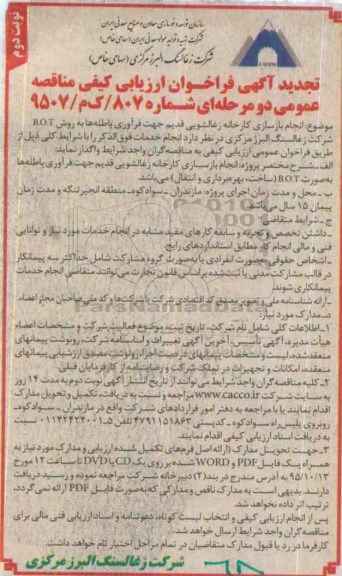 نوبت دوم
سازمان توسعه و نوسازی معادن و صنایع معدنی ایران
شرکت تهیه و تولید مواد معدنی ایران (سهامی خاص)
شرکت زغالسنگ البرز مرکزی (سهامی خاص)
تجدید آگهی فراخوان ارزیابی کیفی مناقصه
عمومی دو مرحله‌ای شماره ۸۰۷/ک‌م/۹۵۰۷
موضوع: انجام بازسازی کارخانه زغالشویی قدیم جهت فرآوری باطله‌ها به روش B.O.T
شرکت زغالسنگ البرز مرکزی در نظر دارد انجام خدمات فوق الذکر را با شرایط کلی ذیل از
طریق فراخوان عمومی ارزیابی کیفی به مناقصه‌گران واجد شرایط واگذار نماید:
الف ـ شرح مختصر پروژه: انجام بازسازی کارخانه زغالشویی قدیم جهت فرآوری باطله‌ها
به‌صورت B.O.T (ساخت، بهره‌برداری و انتقال) می‌باشد.
ب ـ محل و مدت زمان اجرای پروژه: مازندران ـ سوادکوه ـ منطقه انجیرتنگه و مدت زمان
پیمان ۱۵ سال می‌باشد.
ج ـ شرایط متقاضی:
ـ داشتن تخصص و تجربه و سابقه کارهای مفید مشابه در انجام خدمات مورد نیاز و توانایی
فنی و مالی انجام کار مطابق استانداردهای رایج.
ـ اشخاص حقوقی به‌صورت انفرادی یا به‌صورت گروه مشارکت شامل حداکثر سه پیمانکار
در قالب مشارکت مدنی یا ثبت‌شده براساس قانون تجارت می‌توانند متقاضی انجام خدمات
پیمانکاری شوند.
ـ ارائه شناسنامه ملی و تصویر مصدق کد اقتصادی شرکت یا شرکت‌ها و کد ملی صاحبان مجاز امضاء.
د ـ مدارک مورد نیاز:
۱ـ اطلاعات کلی شامل نام شرکت، تاریخ ثبت، موضوع فعالیت شرکت و مشخصات اعضاء
هیأت مدیره، آگهی تأسیس، آخرین آگهی تغییرات و اساسنامه شرکت، رونوشت پیمانهای
منعقدشده، لیست و مشخصات پیمانهای در دست اجرا، رونوشت مصدق ارزشیابی پیمانهای
منعقده، امکانات و تجهیزات در تملک شرکت و رضایتنامه از کارفرمایان قبلی.
۲ـ کلیه مناقصه‌گران واجد شرایط می‌توانند از تاریخ انتشار آگهی نوبت دوم به مدت ۱۴ روز
به سایت شرکت www.cacco.ir مراجعه و نسبت به دریافت، تکمیل و تحویل مدارک
اقدام نمایند یا با مراجعه به دفتر امور قراردادهای شرکت واقع در مازندران ـ سوادکوه ـ
روبروی پلیس‌راه سوادکوه ـ کدپستی ۴۷۹۱۱۵۱۸۶۳ تلفن ۵ـ۰۱۱۴۲۴۲۴۰۰۱ نسبت
به دریافت اسناد ارزیابی کیفی اقدام نمایند.
۳ـ جهت تحویل مدارک (ارائه اصل فرم‌های تکمیل شده ارزیابی و مدارک مورد نیاز به
همراه یک فایل PDF و WORD شده بر روی یک CD یا DVD) تا ساعت ۱۲ مورخ
۹۵/۱۰/۱۳ به آدرس مندرج در بند (۲) دبیرخانه شرکت مراجعه نموده و رسید دریافت
دارند. بدیهی است به مدارک ناقص و مدارکی که به‌صورت فایل PDF ارائه نمی‌گردد،
ترتیب اثر داده نخواهد شد.
پس از انجام ارزیابی کیفی و انتخاب لیست کوتاه، دعوتنامه و اسناد ارزیابی فنی مالی برای
مناقصه‌گران واجد شرایط ارسال خواهد شد.
کارفرما در رد یا قبول مدارک متقاضیان در تمام مراحل اختیار تام خواهد داشت.
شرکت زغالسنگ البرز مرکزی